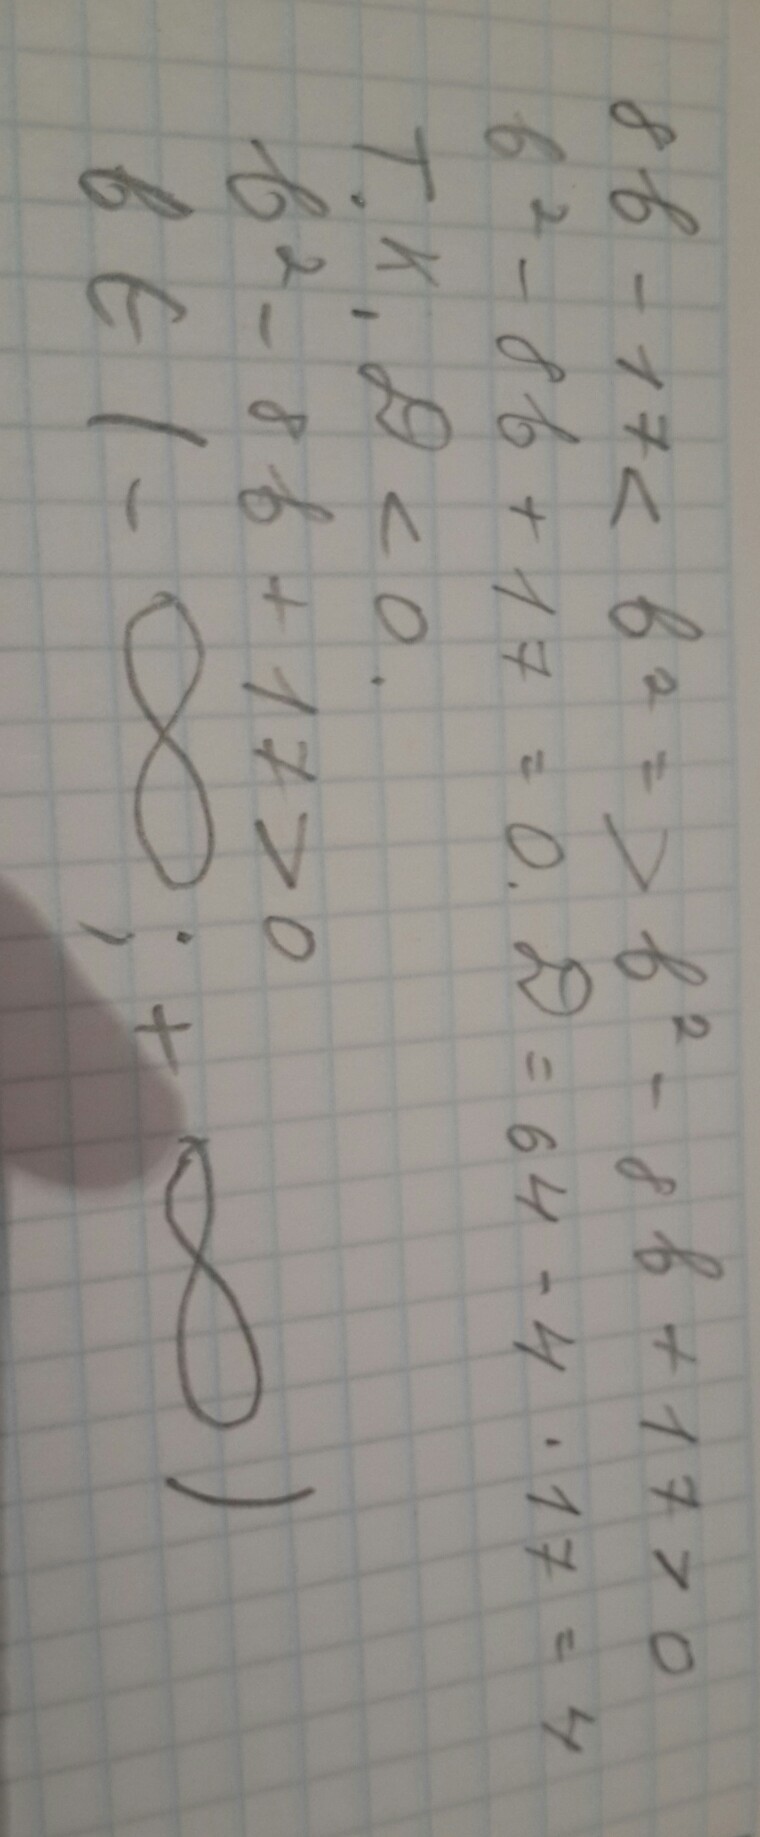 8b - 17 < b² => b² - 8b + 17 > 0
b² - 8b + 17 = 0. D = 64 - 4 · 17 = 4
Т.к. D < 0.
b² - 8b + 17 > 0
b ∈ (-∞; +∞)